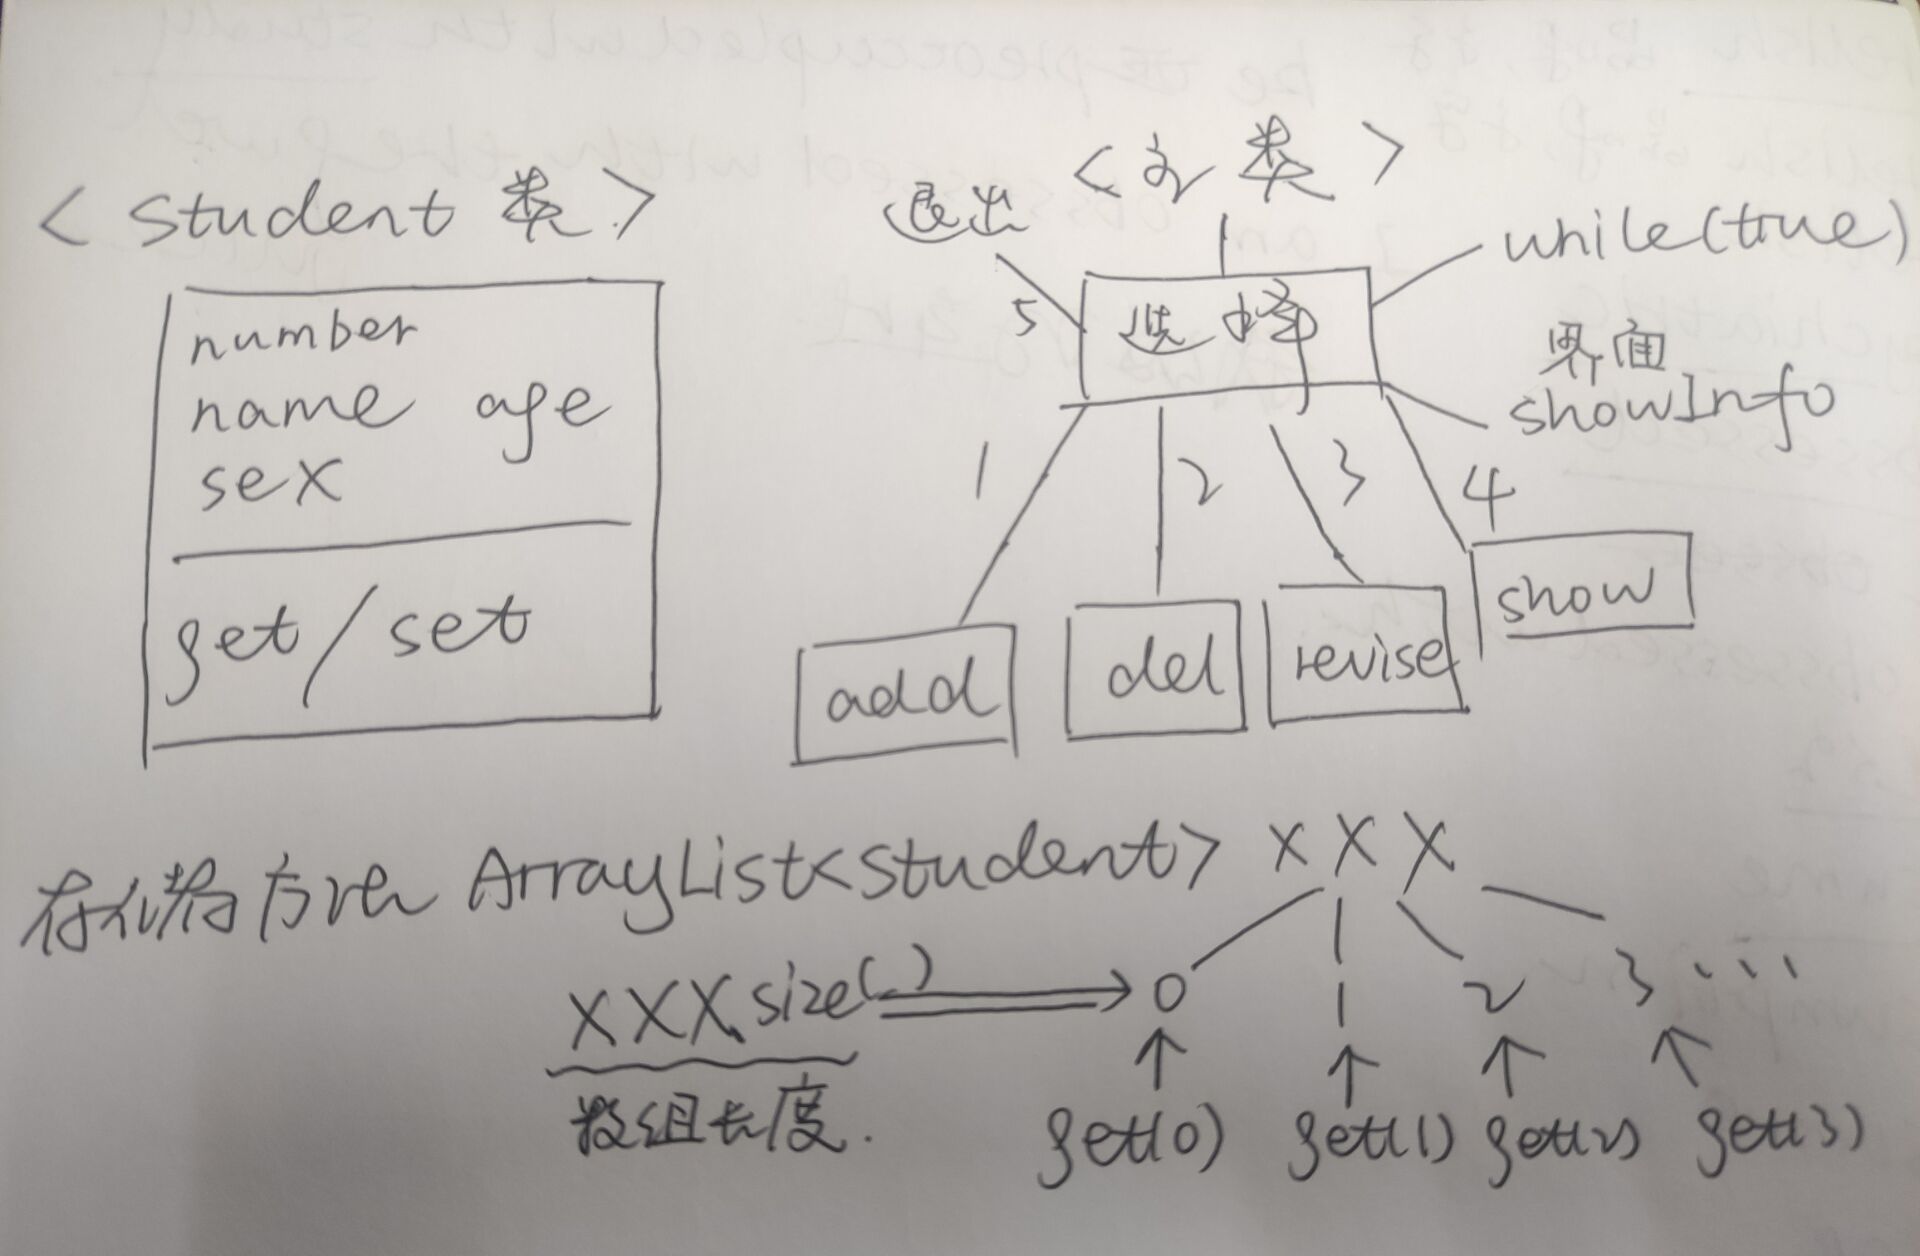 <student 类>
number
name age
sex
get/set
<主类>
退出
while(true)
5
选择
界面
showInfo
1
2
3
4
add
del
revise
show
ArrayList<student> XXX
XXX.size()
0
1
2
3 ...
数组长度.
get(0)
get(1)
get(2)
get(3)